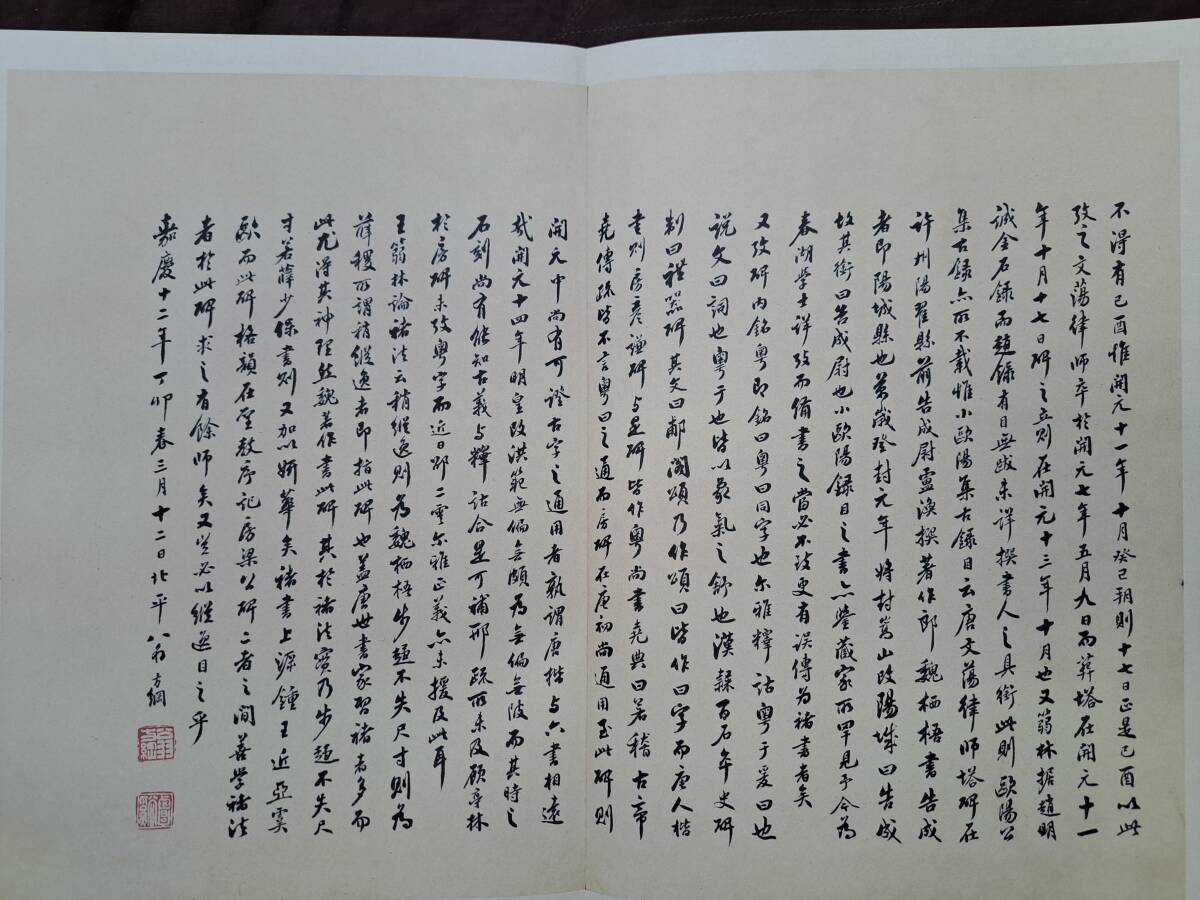 不得有己酉惟開元十一年十月癸已朔則十七日正是己酉以此
攷之文蕩律師卒於開元七年五月九日而葬塔在開元十一
年十月十七日碑之立則在開元十三年十月也又蒻林據趙明
誠金石錄而趙錄有目無跋未詳撰書人之具銜此則歐陽公
集古錄亦所不載惟小歐陽集古錄目云唐文蕩律師塔碑在
許州陽翟縣前告成尉盧渙撰著作郎魏栖梧書告成
者即陽城縣也萬歲登封元年將封嵩山改陽城曰告成
故其銜曰告成尉也小歐陽錄目之書亦鑒藏家所罕見予今為
春湖學士詳攷而備書之當必不致更有誤傳為褚書者矣
又攷碑內銘粵即銘曰粵曰同字也尔雅釋詁粵于爰曰也
說文曰詞也粵于也皆以象氣之舒也漢隸百石卒史碑
制曰禮器碑其文曰郙閣頌乃作頌曰皆作曰字而唐人楷
書則房彥謙碑与是碑皆作粵尚書堯典曰若稽古帝
堯傳疏皆不言粵曰之通而房碑在唐初尚通用至此碑則
開元中尚有可證古字之通用者孰謂唐楷与六書相遠
哉開元十四年明皇改洪範無偏無頗為無偏無陂而其時之
石刻尚有能知古義与釋詁合是可補邢疏所未及顧亭林
於房碑未攷粵字而近日邵二雲尔雅正義亦未援及此耳
王蒻林論褚法云稍縱逸則為魏栖梧步趨不失尺寸則為
薛稷所謂稍縱逸者即指此碑也蓋唐世書家習褚者多而
此尤得其神理然魏著作書此碑其於褚法實乃步趨不失尺
寸若薛少保書則又加以妍華矣褚書上源鍾王近亞虞
歐而此碑格韻在聖教序記房梁公碑二者之間善學褚法
者於此碑求之有餘師矣又豈必以縱逸目之乎
嘉慶十二年丁卯春三月十二日北平翁方綱